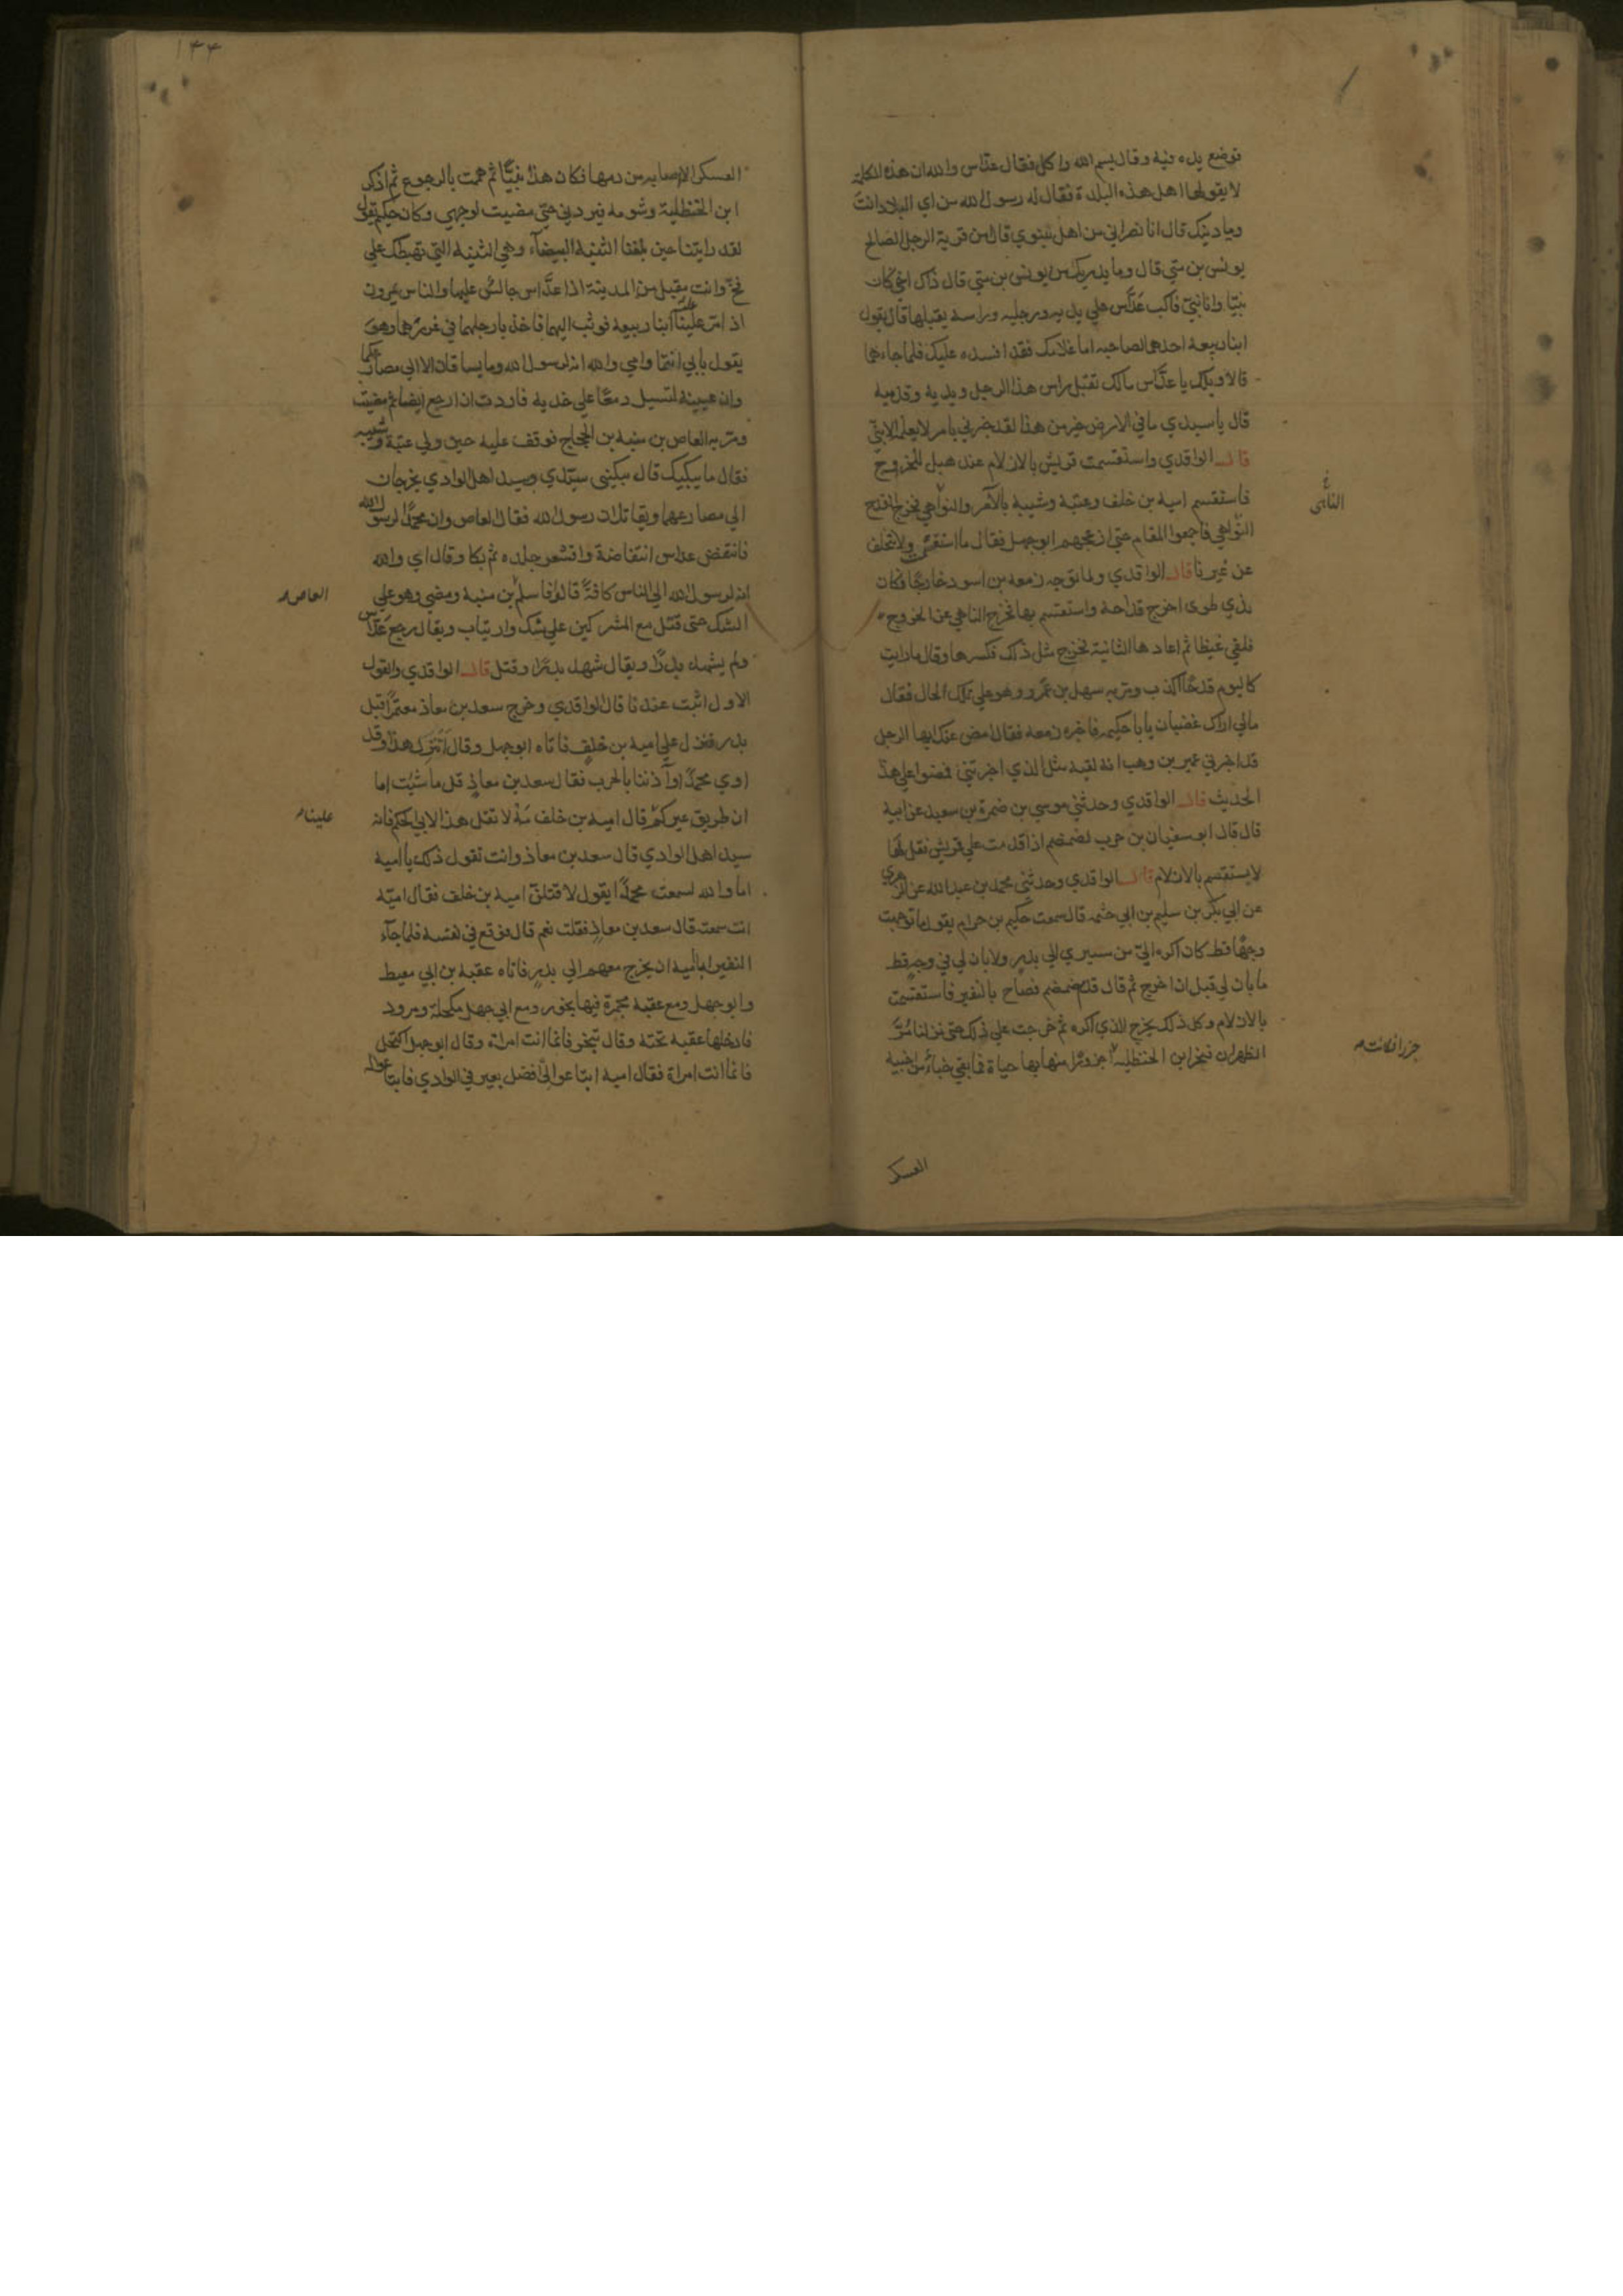 فوضع يده فيه وقال بسم الله واكل فقال عدّاس والله ان هذه الكلمة
لا يقولها اهل هذه البلدة فقال له رسول الله من اي البلاد انت
وما دينك قال انا نصراني من اهل نينوي قال من قرية الرجل الصالح
يونس بن متي قال وما يدريك من يونس بن متي قال ذاك اخي كان
نبيّا وانا نبيّ فاكب عَدّاس علي يديه ورجليه وراسه يقبلها قال يقول
ابنا ربيعة احدهما لصاحبه اما غلامك فقد افسده عليك فلما جاءهما
قالا ويلك يا عدّاس مالك تقبل راس هذا الرجل ويديه وقدميه
قال يا سيدي ما في الارض خير من هذا لقد خبرني بامر لا يعلمه الا نبيّ
قال الواقدي واستقسمت قريش بالازلام عند هبل للخروج
فاستقسم امية بن خلف وعتبة وشيبة بالآمر والنواهي فخرج القدح
الناهي
النواهي فاجمعوا المقام حتي ازعجهم ابو جهل فقال ما استقسمت ولا نتخلف
عن عيرنا قال الواقدي ولما توجه زمعه بن اسود خارجًا فكان
بذي طوى اخرج قداحه واستقسم بها فخرج الناهي عن الخروج
فلقي غيظا ثم اعادها الثانية فخرج مثل ذلك فكسرها وقال ما رايت
كاليوم قدحًا اكذب ومر به سهل بن عَمرو وهو علي تلك الحال فقال
مالي اراك غضبان يا با حكيمه فاخبره زمعه فقال امض عنك ايها الرجل
قد اخبرني عمير بن وهب انه لقيه مثل الذي اخبرتني فمضوا علي هذا
الحديث قال الواقدي وحدثني موسي بن ضمرة بن سعيد عن ابيه
قال قال ابو سفيان بن حرب لضمضم اذا قدمت علي قريش فقل لها
لا يستقسم بالازلام قال الواقدي وحدثني محمد بن عبد الله عن الزهري
عن ابي بكر بن سليم بن ابي حثمه قال سمعت حكيم بن حزام يقول ما توجهت
وجهًا قط كان اكره اليّ من مسيري الي بدرٍ ولا بان لي في وجهٍ قط
ما بان لي قبل ان اخرج ثم قال قدم ضمضم فصاح بالنفير فاستقسمت
بالازلام وكل ذلك يخرج الذي اكره ثم خرجت علي ذلك حتى نزلنا مَرّ
الظهران فنحر ابن الحنظلية جزورًا منها بها حياة فما بقي خباء من اخبية
جزرا فكانت
العسكر
١٤٤
العسكر الا اصابه من دمها فكان هذا بَيّنًا ثم هممت بالرجوع ثم اذكر
ابن الحنظلية وشومه فيردني حتي مضيت لوجهي وكان حكيم يقول
لقد رايتنا حين بلغنا الثنية البيضآء وهي الثنية التي تهبطك علي
فخّ وانت مقبل من المدينة اذا عدّاس جالس عليها والناس يمرون
اذ مر علينا ابنا ربيعه فوثب اليهما فاخذ بارجلهما في غرزهما وهو
يقول بابي انتما وامي والله انه لرسول الله وما يساقان الا الي مصارعكما
وان عينيه لتسيل دمعًا علي خديه فاردت ان ارجع ايضا ثم مضيت
ومر به العاص بن منبه بن الحجاج فوقف عليه حين ولي عتبة وشيبه
فقال ما يبكيك قال يبكيني سيدي وسيد اهل الوادي يخرجان
الي مصارعهما ويقاتلان رسول الله فقال العاص وان محمدًا لرسول الله
فانتفض عداس انتفاضة واقشعر جلده ثم بكا وقال اي والله
انه لرسول الله الي الناس كافةً قال فاسلم بن منبه ومضي وهو علي
العاص
الشك حتى قتل مع المشركين علي شك وارتياب ويقال رجع عدّاس
ولم يشهد بدرًا ويقال شهد بدرًا وقتل قال الواقدي والقول
الاول اثبت عندنا قال الواقدي وخرج سعد بن معاذ معتمرًا قبل
بدر فنزل علي اميه بن خلفٍ فاتاه ابو جهل وقال اتنزل هذا وقد
اوي محمدًا وآذننا بالحرب فقال سعد بن معاذ قل ما شئت اما
ان طريق عيركم قال اميه بن خلف مه لا تقل هذا لابي الحكم فانه
علينا
سيد اهل الوادي قال سعد بن معاذ وانت تقول ذلك يا اميه
اما والله لسمعت محمدًا يقول لاقتلنّ اميه بن خلف فقال اميّه
انت سمعته قال سعد بن معاذٍ فقلت نعم قال فوقع في نفسه فلما جآء
النفير ابا اميه ان يخرج معهم الي بدرٍ فاتاه عقبه بن ابي معيط
وابو جهل ومع عقبه مجمرة فيها بخور ومع ابي جهل مكحلة ومرود
فادخلها عقبه تحته وقال تبخر فانما انت امراة وقال ابو جهل اكتحل
فانما انت امراة فقال اميه ابتاعوا لي افضل بعير في الوادي فابتاعوا له